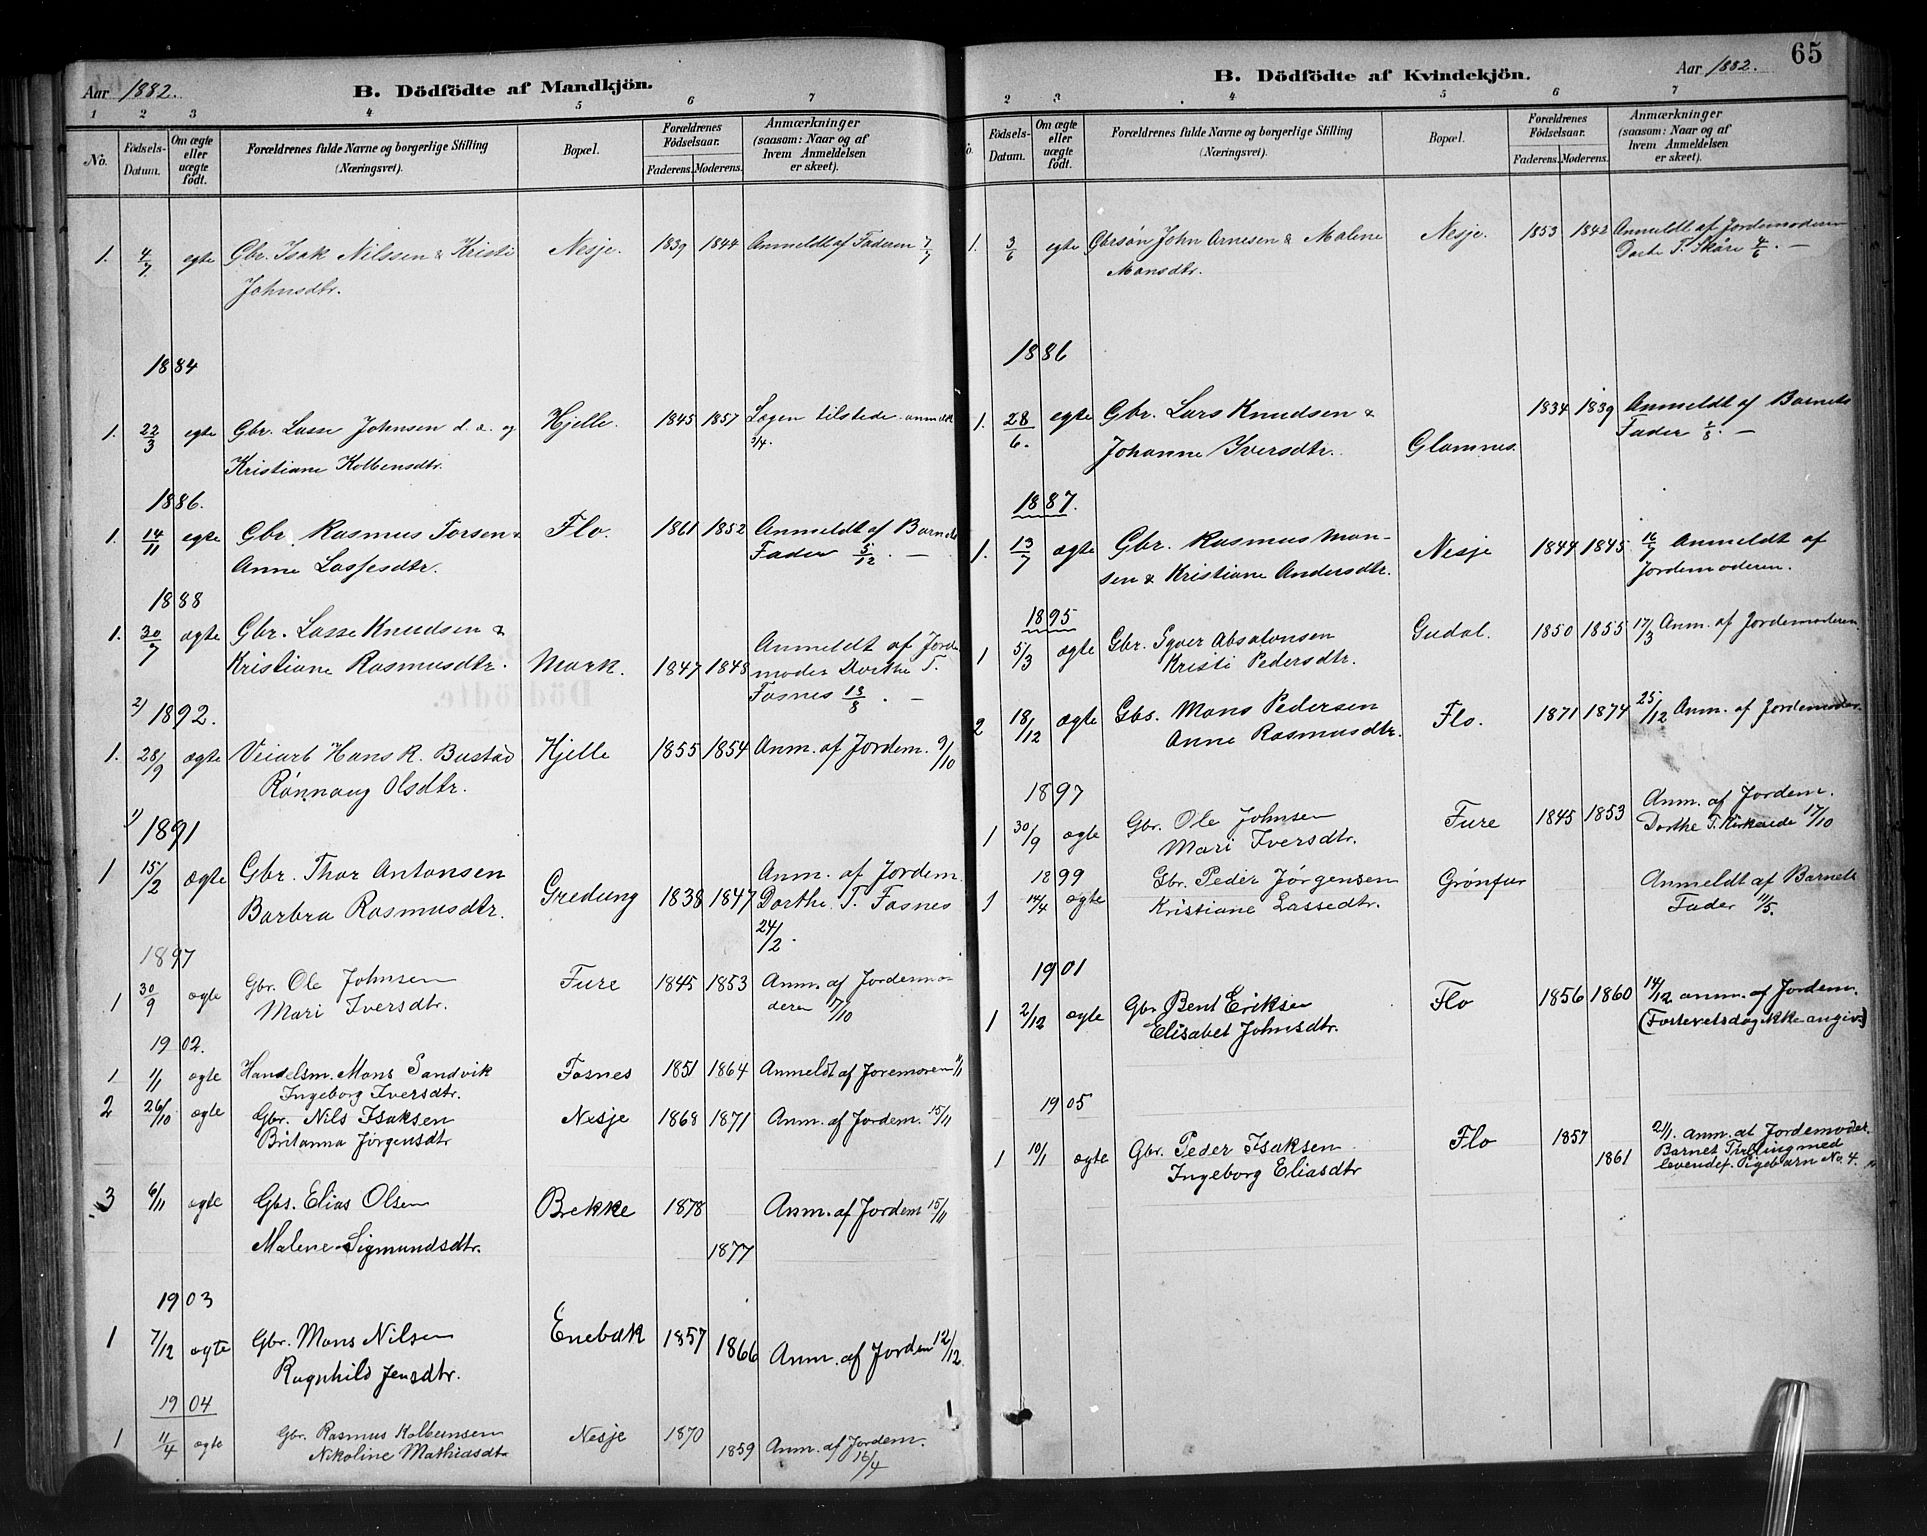 Aar 1882.
B. Dödfödte af Mandkjön.
1 2 3 4 5 6 7
No. Födsels-Datum. Om ægte eller uægte födt. Forældrenes fulde Navne og borgerlige Stilling (Næringsvei). Bopæl. Forældrenes Födselsaar. Faderens. Moderens. Anmærkninger (saasom: Naar og af hvem Anmeldelsen er skeet).
1. 4/7 egte Gbr. Isak Nilssen & Kristi Nesje. 1839 1844 Anmeldt af Faderen 7/7
Johnsdtr.
1884
1. 22/3 egte Gbr. Lasse Johnsen d. æ. og Hjelle. 1845 1857 Lægen tilstede. anmeldt
Kristiane Kolbensdtr. 3/4.
1886.
1. 14/11 egte Gbr. Rasmus Torsen & Flo. 1861 1852 Anmeldt af Barnets
Anne Lassesdtr. Fader 5/12. —
1888
1. 30/7 ægte Gbr. Lasse Knudsen & Anmeldt af Jorde
Kristiane Rasmusdtr. Mork. 1847 1848 moder Dorthe T.
Fosnes 13/8. —
2) 1892.
1. 28/9 ægte Veiarb Hans R. Bustad Hjelle 1855 1854 Anm. af Jordem. 9/10
Rønnaug Olsdtr.
1) 1891
1 15/2 ægte Gbr. Thor Antonsen Anm. af Jordem.
Barbra Rasmusdtr. Gredung 1838 1847 Dorthe T. Fosnes
24/2.
1897
1 30/9 ægte Gbr. Ole Johnsen Fure 1845 1853 Anm. af Jordemo-
Mari Iversdtr. deren 17/10
1902.
1 1/1 ægte Handelsm. Mons Sandvik Fosnes 1851 1864 Anmeldt af Joremoren 1/1
Ingeborg Iversdtr.
2 26/10 ægte Gbr. Nils Isaksen Nesje 1868 1871 Anm. af Jordem. 15/11
Britanna Jörgensdtr
3 6/11 ægte Gbs. Elias Olsen Brekke 1878 Anm. af Jordem 15/11
Malene Sigmundsdtr. 1877
1903
1 7/12 ægte Gbr. Mons Nilsen Enebak 1857 1866 Anm. af Jordem 12/12.
Ragnhild Jensdtr.
1904
1 11/4 ægte Gbr. Rasmus Kolbeinsen Nesje 1870
Nikoline Mathiasdtr 1859 Anm. af Jordem. 16/4
65
B. Dödfödte af Kvindekjön. Aar 1882.
2 3 4 5 6 7
No. Födsels-Datum. Om ægte eller uægte födt. Forældrenes fulde Navne og borgerlige Stilling (Næringsvei). Bopæl. Forældrenes Födselsaar. Faderens. Moderens. Anmærkninger (saasom: Naar og af hvem Anmeldelsen er skeet).
1. 3/6 egte Gbrsøn John Arnesen & Malene Nesje. 1853 1842 Anmeldt af Jordemoderen
Monsdtr. Dorte T. Skåre 4/6. —
1886
1. 28/6. egte Gbr. Lars Knudsen & 1834 1839 Anmeldt af Barnets
Johanne Iversdtr. Glomnes. Fader 1/8. —
1887.
1. 13/7 ægte Gbr. Rasmus Mon- Nesje 1844 1845 16/7 Anmeldt af
sen & Kristiane Andersdtr. Jordemoderen.
1895
1 5/3 ægte Gbr. Syver Absalonsen Gudal. 1850 1855 17/3 Anm. af Jordemoderen.
Kristi Pedersdtr.
2 18/12 ægte Gbs. Mons Pedersen Flo. 1871 1874 25/12 Anm. af Jordemoder.
Anne Rasmusdtr.
1897
1 30/9 ægte Gbr. Ole Johnsen Fure 1845 1853 Anm. af Jordem.
Mari Iversdtr. Dorthe T. Kirkeide 17/10
1899
1 14/4 ægte Gbr. Peder Jørgensen Grønfur Anmeldt af Barnets
Kristiane Lassedtr. Fader 11/5.
1901
1 2/12 ægte Gbr Bent Eriksen Flo 1856 1860 14/12 anm. af Jordem.
Elisabet Johnsdtr. (Fosterets dag ikke angiv.)
1905
1 10/1 ægte Gbr. Peder Isaksen Flo 1857 21/1. anm. af Jordemoder.
Ingeborg Eliasdtr 1861 Barnet Tvilling med
levendef. Pigebarn No. 4.